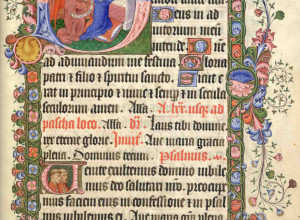 Deus in ad
iutorium meum
intende. Dne
ad adiuvandum me festina. Gloria
patri et filio et spiritui sancto. Sicut e
rat in principio et nunc et semp et in secula
seculorum amen. Alla. A lxx. usqz ad
pascha loco. Alla. Dr. Laus tibi domi
rex eterne glorie. Invit. Ave maria gracia
plena. Dominus tecum. Psalmus.
Venite exultemus domino iubile
mus deo salutari nro. preocupe
mus faciem eius in confessione et in psal
mis iubilemus ei Ave maria gracia